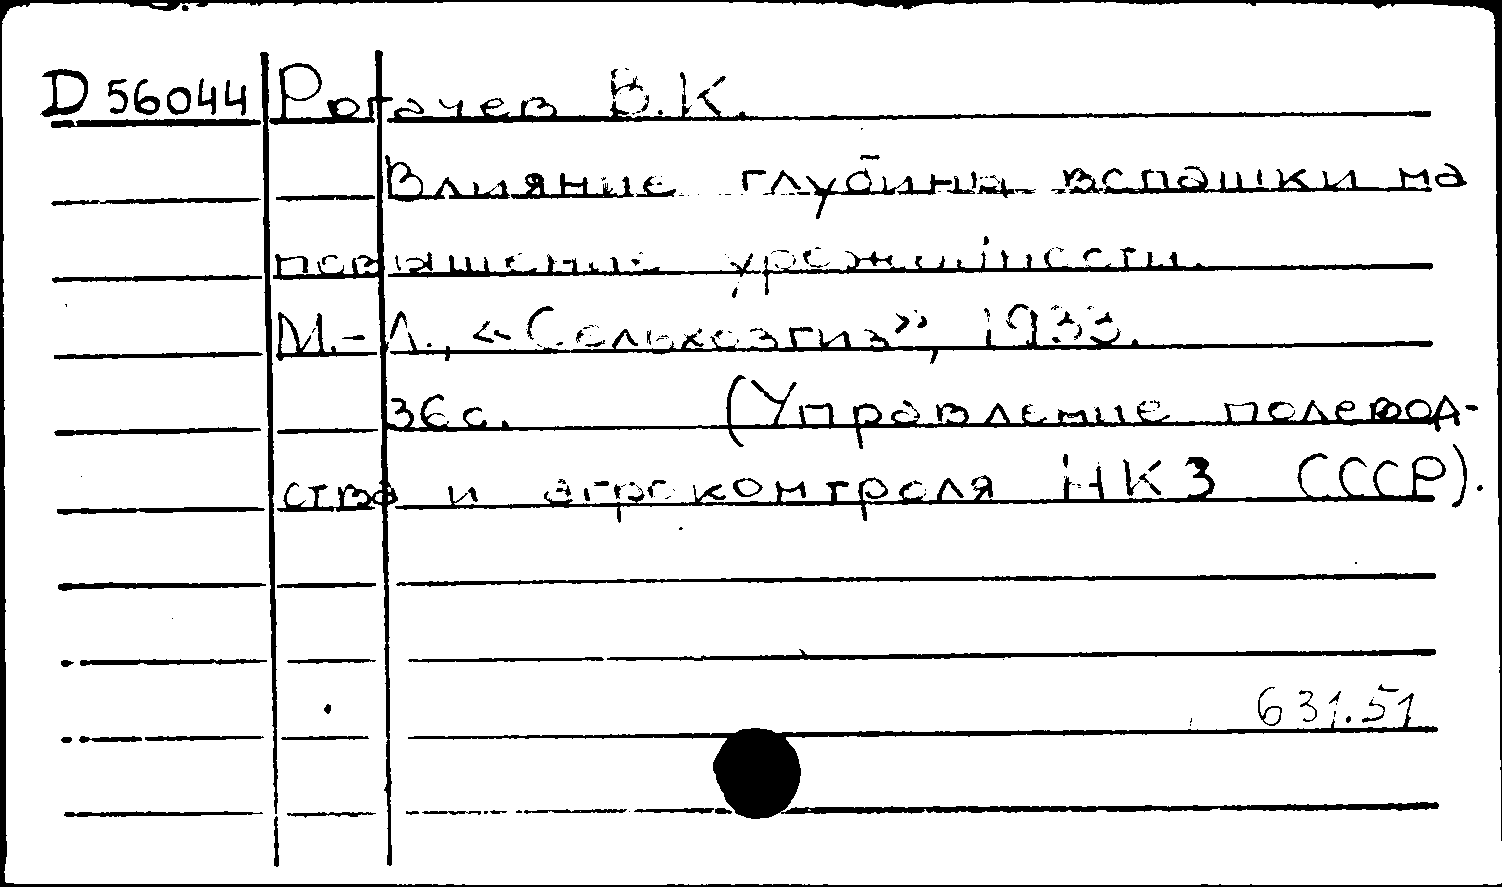 D 56044 Рогачев В.К.
Влияние глубины вспашки на
повышение урожайности.
М.-Л., «Сельхозгиз», 1933.
36 с. (Управление полевод-
ства и агроконтроля НКЗ СССР).
631.51